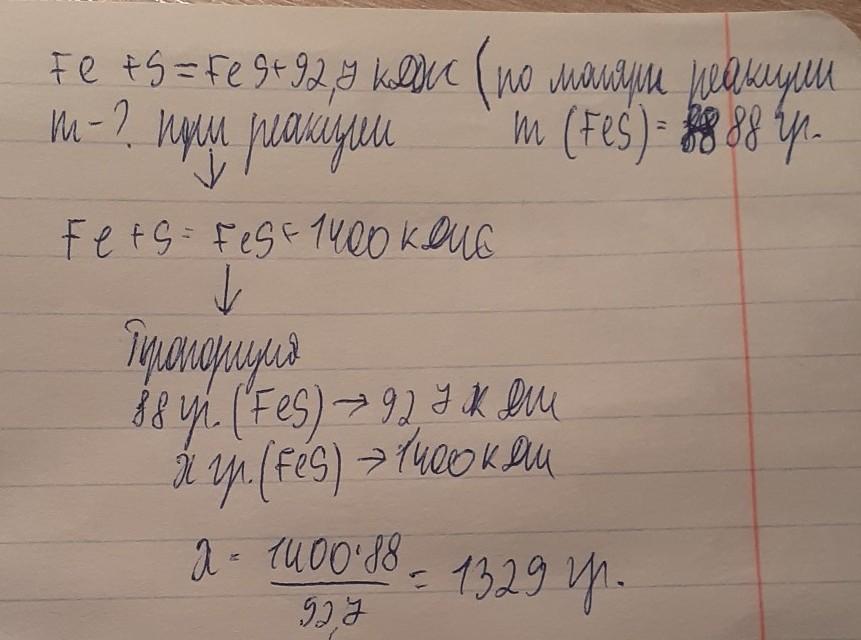 Fe + S = FeS + 92,7 кДж (по моляри реакции
m - ? при реакции m (FeS) = 88 гр.
↓
Fe + S = FeS + 1400 кДж
↓
Пропорция
88 гр. (FeS) → 92,7 кДж
x гр. (FeS) → 1400 кДж
x = 1400·88 / 92,7 = 1329 гр.